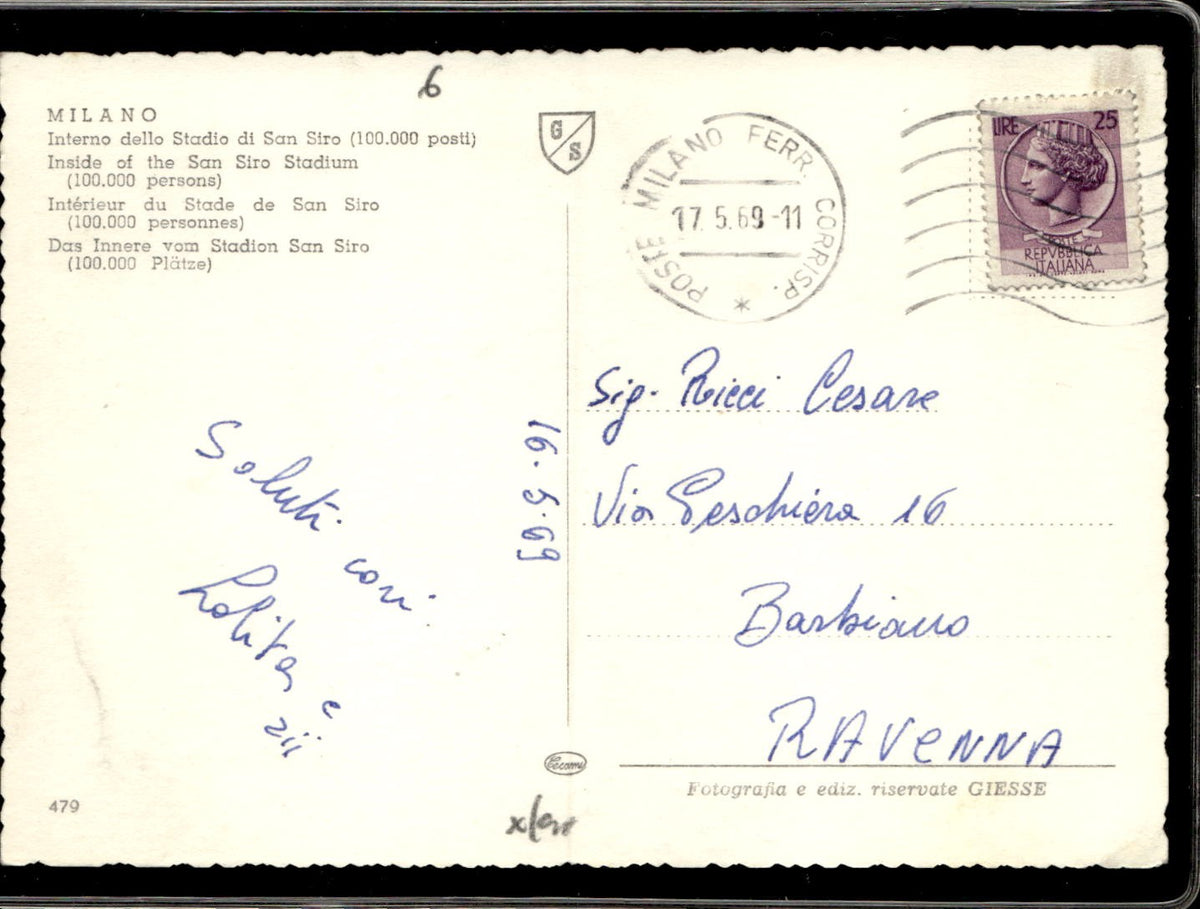 6
MILANO
Interno dello Stadio di San Siro (100.000 posti)
Inside of the San Siro Stadium
(100.000 persons)
Intérieur du Stade de San Siro
(100.000 personnes)
Das Innere vom Stadion San Siro
(100.000 Plätze)
G
S
POSTE MILANO FERR. CORRISP. *
17.5.69-11
LIRE 25
REPVBBLICA
ITALIANA
Saluti cari
Lolita e
zii
16.5.69
Sig. Ricci Cesare
Via Peschiera 16
Barbiano
RAVENNA
Cecami
Fotografia e ediz. riservate GIESSE
479